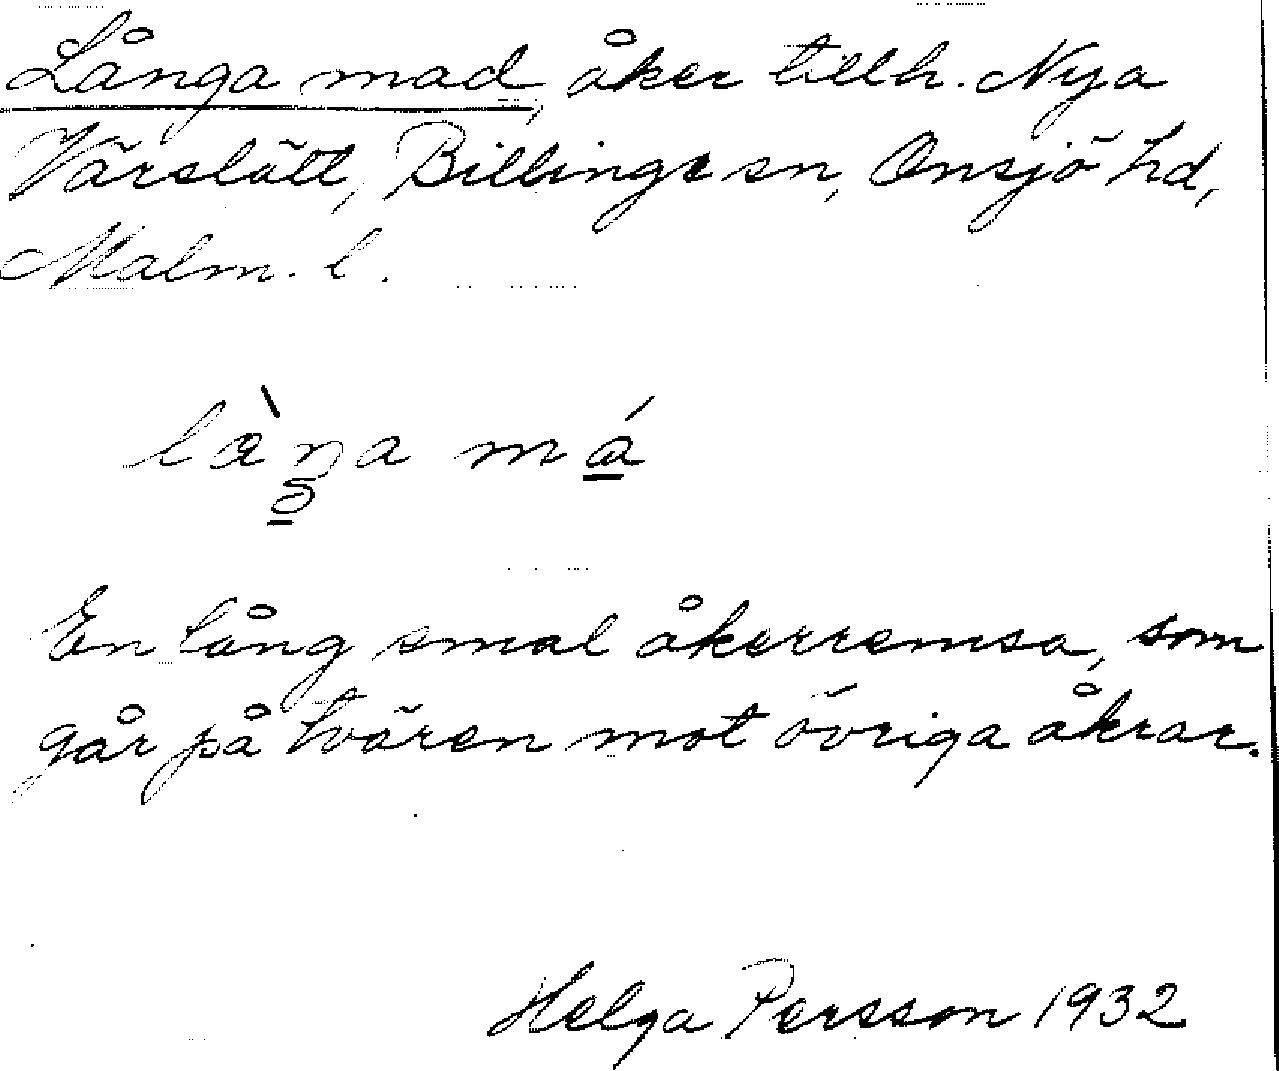 Långa mad, åker tillh. Nya
Värslätt, Billinge sn, Onsjö hd,
Malm. l.
En lång smal åkerremsa, som
går på tvären mot övriga åkrar.
Helga Persson 1932